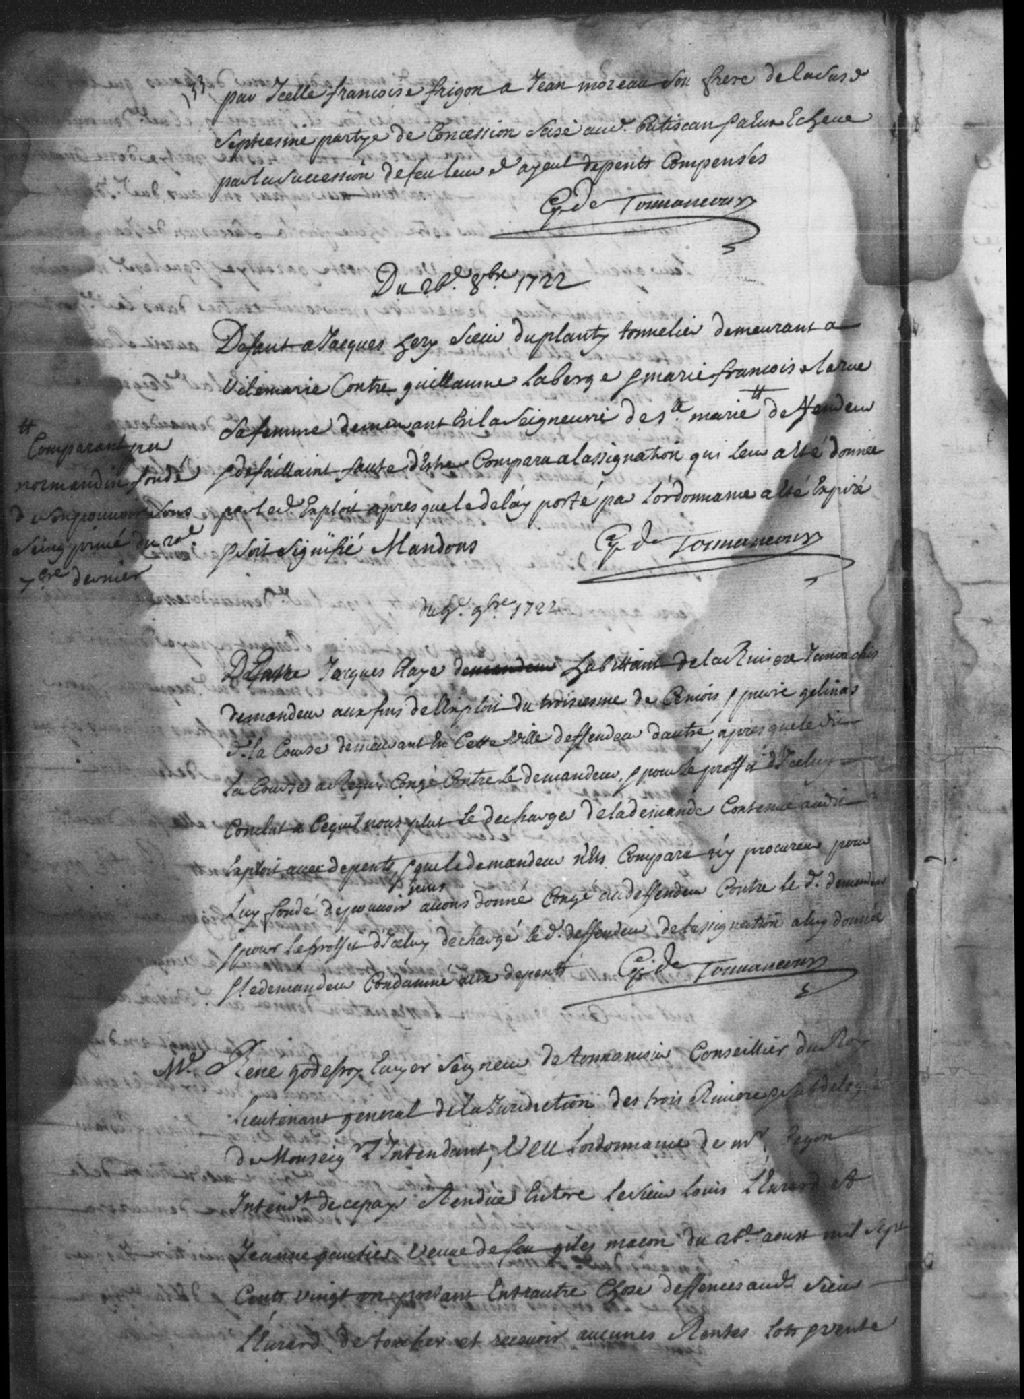 133
par Icelle francoise frigon a Jean moreau son frere de la susd
Septiesme partye de Concession sise aud. Batiscan a Eux Echeue
par la succession de feu leur d ayeul depents Compensés
G. de Tonnancour
Du 26e. 8bre 1722
Defaut a Jacques hery Sieur duplanty tonnelier demeurant a
Vilemarie Contre guillaume Laberge & marie francoise
sa femme demeurant En la Seigneurie de Ste marie # deffendeur
& defaillaint faute d'Estre Comparu a lassignation qui leur a Esté donnée
par led. Exploit apres que le delay porté par L'ordonnance a Esté Expiré
& soit signiffié Mandons
G. de Tonnancour
#
Comparant par
normandin fondé
de son pouvoir sous
seing privé du 20e.
7bre dernier
du 9bre 1722
Jacques habittant de la Riviere
demandeur aux fins de l'Exploit du troisiesme de Ce mois & gelinas
dit la Course demeurant En Cette Ville deffendeur d'autre, apres que le dit
la Course a Requis Congé Contre le demandeur, & pour le proffit d'Iceluy
Conclut a Ce qu'il nous plut le decharger de la demande Contenue audit
Exploit avec depents, & que le demandeur n'Est Comparu ny procureur pour
Luy fondé de pouvoir nous avons donné Congé au deffendeur Contre le d. demandeur
& pour le proffit d'Iceluy dechargé le d. deffendeur de l'assignation a luy donnée
& le demandeur Condamné aux depents
G. de Tonnancour
Mre. Rene godefroy Ecuyer Seigneur de tonnancour Conseillier du Roy
Lieutenant general de la Juridiction des trois Rivieres & subdelegué
de Monseigr L'Intendant, Veu L'ordonnance de mr. Begon
Intendt. de ce pays Rendue Entre le sieur Louis et
Jeanne gautier Veuve de feu giles maçon du 26e. aoust mil sept
Cents vingt un portant Entrautre Chose deffences aud. Sieur
de toucher et recevoir aucunes Rentes Lots & vente